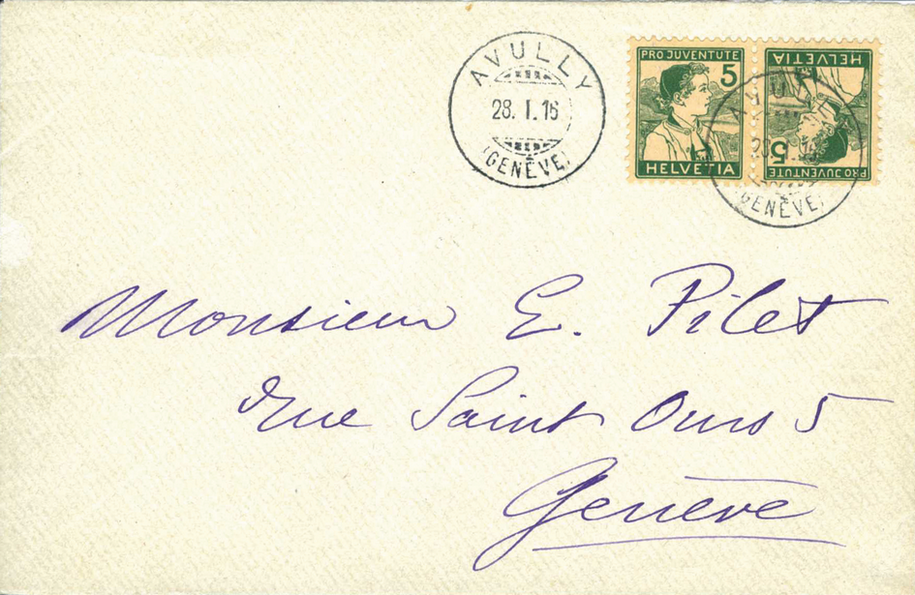 AVULLY
28. I. 16
(GENÈVE)
PRO JUVENTUTE
5
HELVETIA
PRO JUVENTUTE
5
HELVETIA
(GENÈVE)
Monsieur E. Pilet
rue Saint Ours 5
Genève